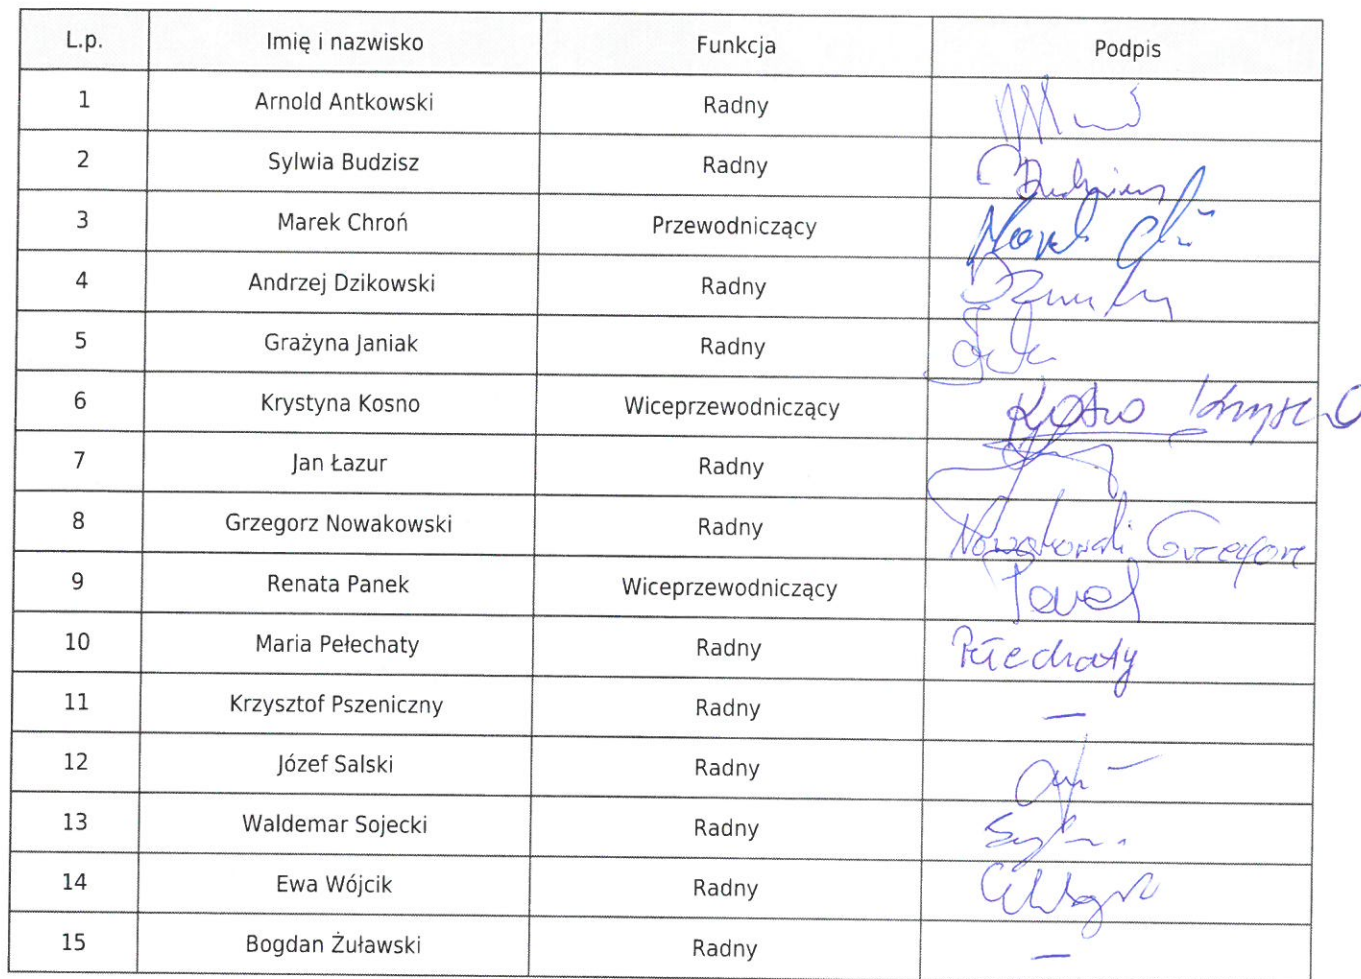 L.p. Imię i nazwisko Funkcja Podpis
1 Arnold Antkowski Radny
2 Sylwia Budzisz Radny
3 Marek Chroń Przewodniczący Marek
4 Andrzej Dzikowski Radny
5 Grażyna Janiak Radny
6 Krystyna Kosno Wiceprzewodniczący Kosno
7 Jan Łazur Radny
8 Grzegorz Nowakowski Radny Nowakowski Grzegorz
9 Renata Panek Wiceprzewodniczący
10 Maria Pełechaty Radny Pełechaty
11 Krzysztof Pszeniczny Radny —
12 Józef Salski Radny
13 Waldemar Sojecki Radny
14 Ewa Wójcik Radny
15 Bogdan Żuławski Radny —